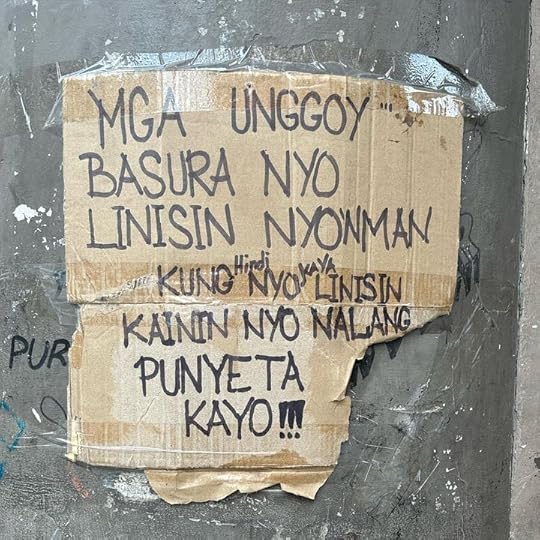 MGA UNGGOY...
BASURA NYO
LINISIN NYO'NMAN
KUNG Hindi NYO KAYA LINISIN
KAININ NYO NALANG
PUNYETA
KAYO!!!
PUR